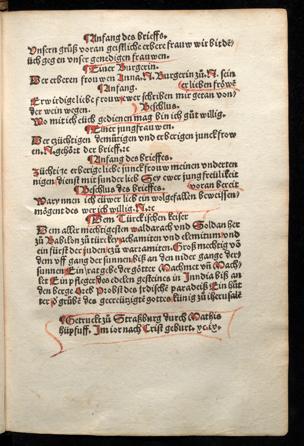 ¶Anfang des brieffs.
Vnsern grůß voran geistliche erbere frauw wir bitdē
üch geg en vnser genedigen frauwen.
¶Einer Burgerin.
Der erberen frouwen Anna. N. Burgerin zů. N. sein
¶Anfang. er lieben frōwē
Er wirdige liebe frouw ewer schriben mir getan von
der wein wegen. ¶Beschlus.
Wo mit ich euch gedienen mag bin ich gůt willig.
¶Einer jungfrauwen.
Der zůchtigen demůtigen vnd erberigen junckfrow
en. N. gehört der brieff. ꝛc
¶Anfang des brieffs.
züchtige erberige liebe junckfrouw meinen vnderten
nigen dienst mit sunder lieb Sey ewer jung freülikeit
¶Beschlus des brieffes. voran bereit
Warynnen ich eüwer lieb ein wolgefallen beweissen
möcht des wer ich willig. N. ꝛc
¶Dem Türckischen keiser
Dem aller mechtigesten waldarach vnd Soldan her
zů Babilon zů türkey achamiten vnd elemitum vnd
ein fürst der juden zů warsamiten. Groß mechtig võ
dem vff gang der sunnen biß an den nider gange der
sunnen Ein ratgebe der götter Machmet vñ Mach
let Ein pfleger des edelen gesteins in Inndia biß an
den berge Oreb Probst des irdische paradeiß Ein hüt
ter des grůbs des gecreützigte gottes künig zů iherusalē
¶Getruckt zů Straßburg durch Mathis
hüpfuff. Im ior nach Crist geburt.